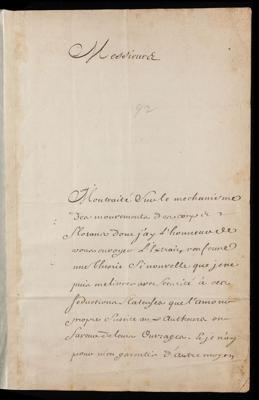 Messieurs
92
Mon traité Sur le mechanisme
des mouvements des corps
flotans dont j'ay L'honneur de
vous envoyer L'Extrait, renferme
une théorie Si nouvelle que je ne
puis me livrer avec Securité à ces
Seductions que L'amour
propre au Autheurs en
faveur de leurs Ouvrages. Et je n'ay
pour m'en garentir d'autre moyen